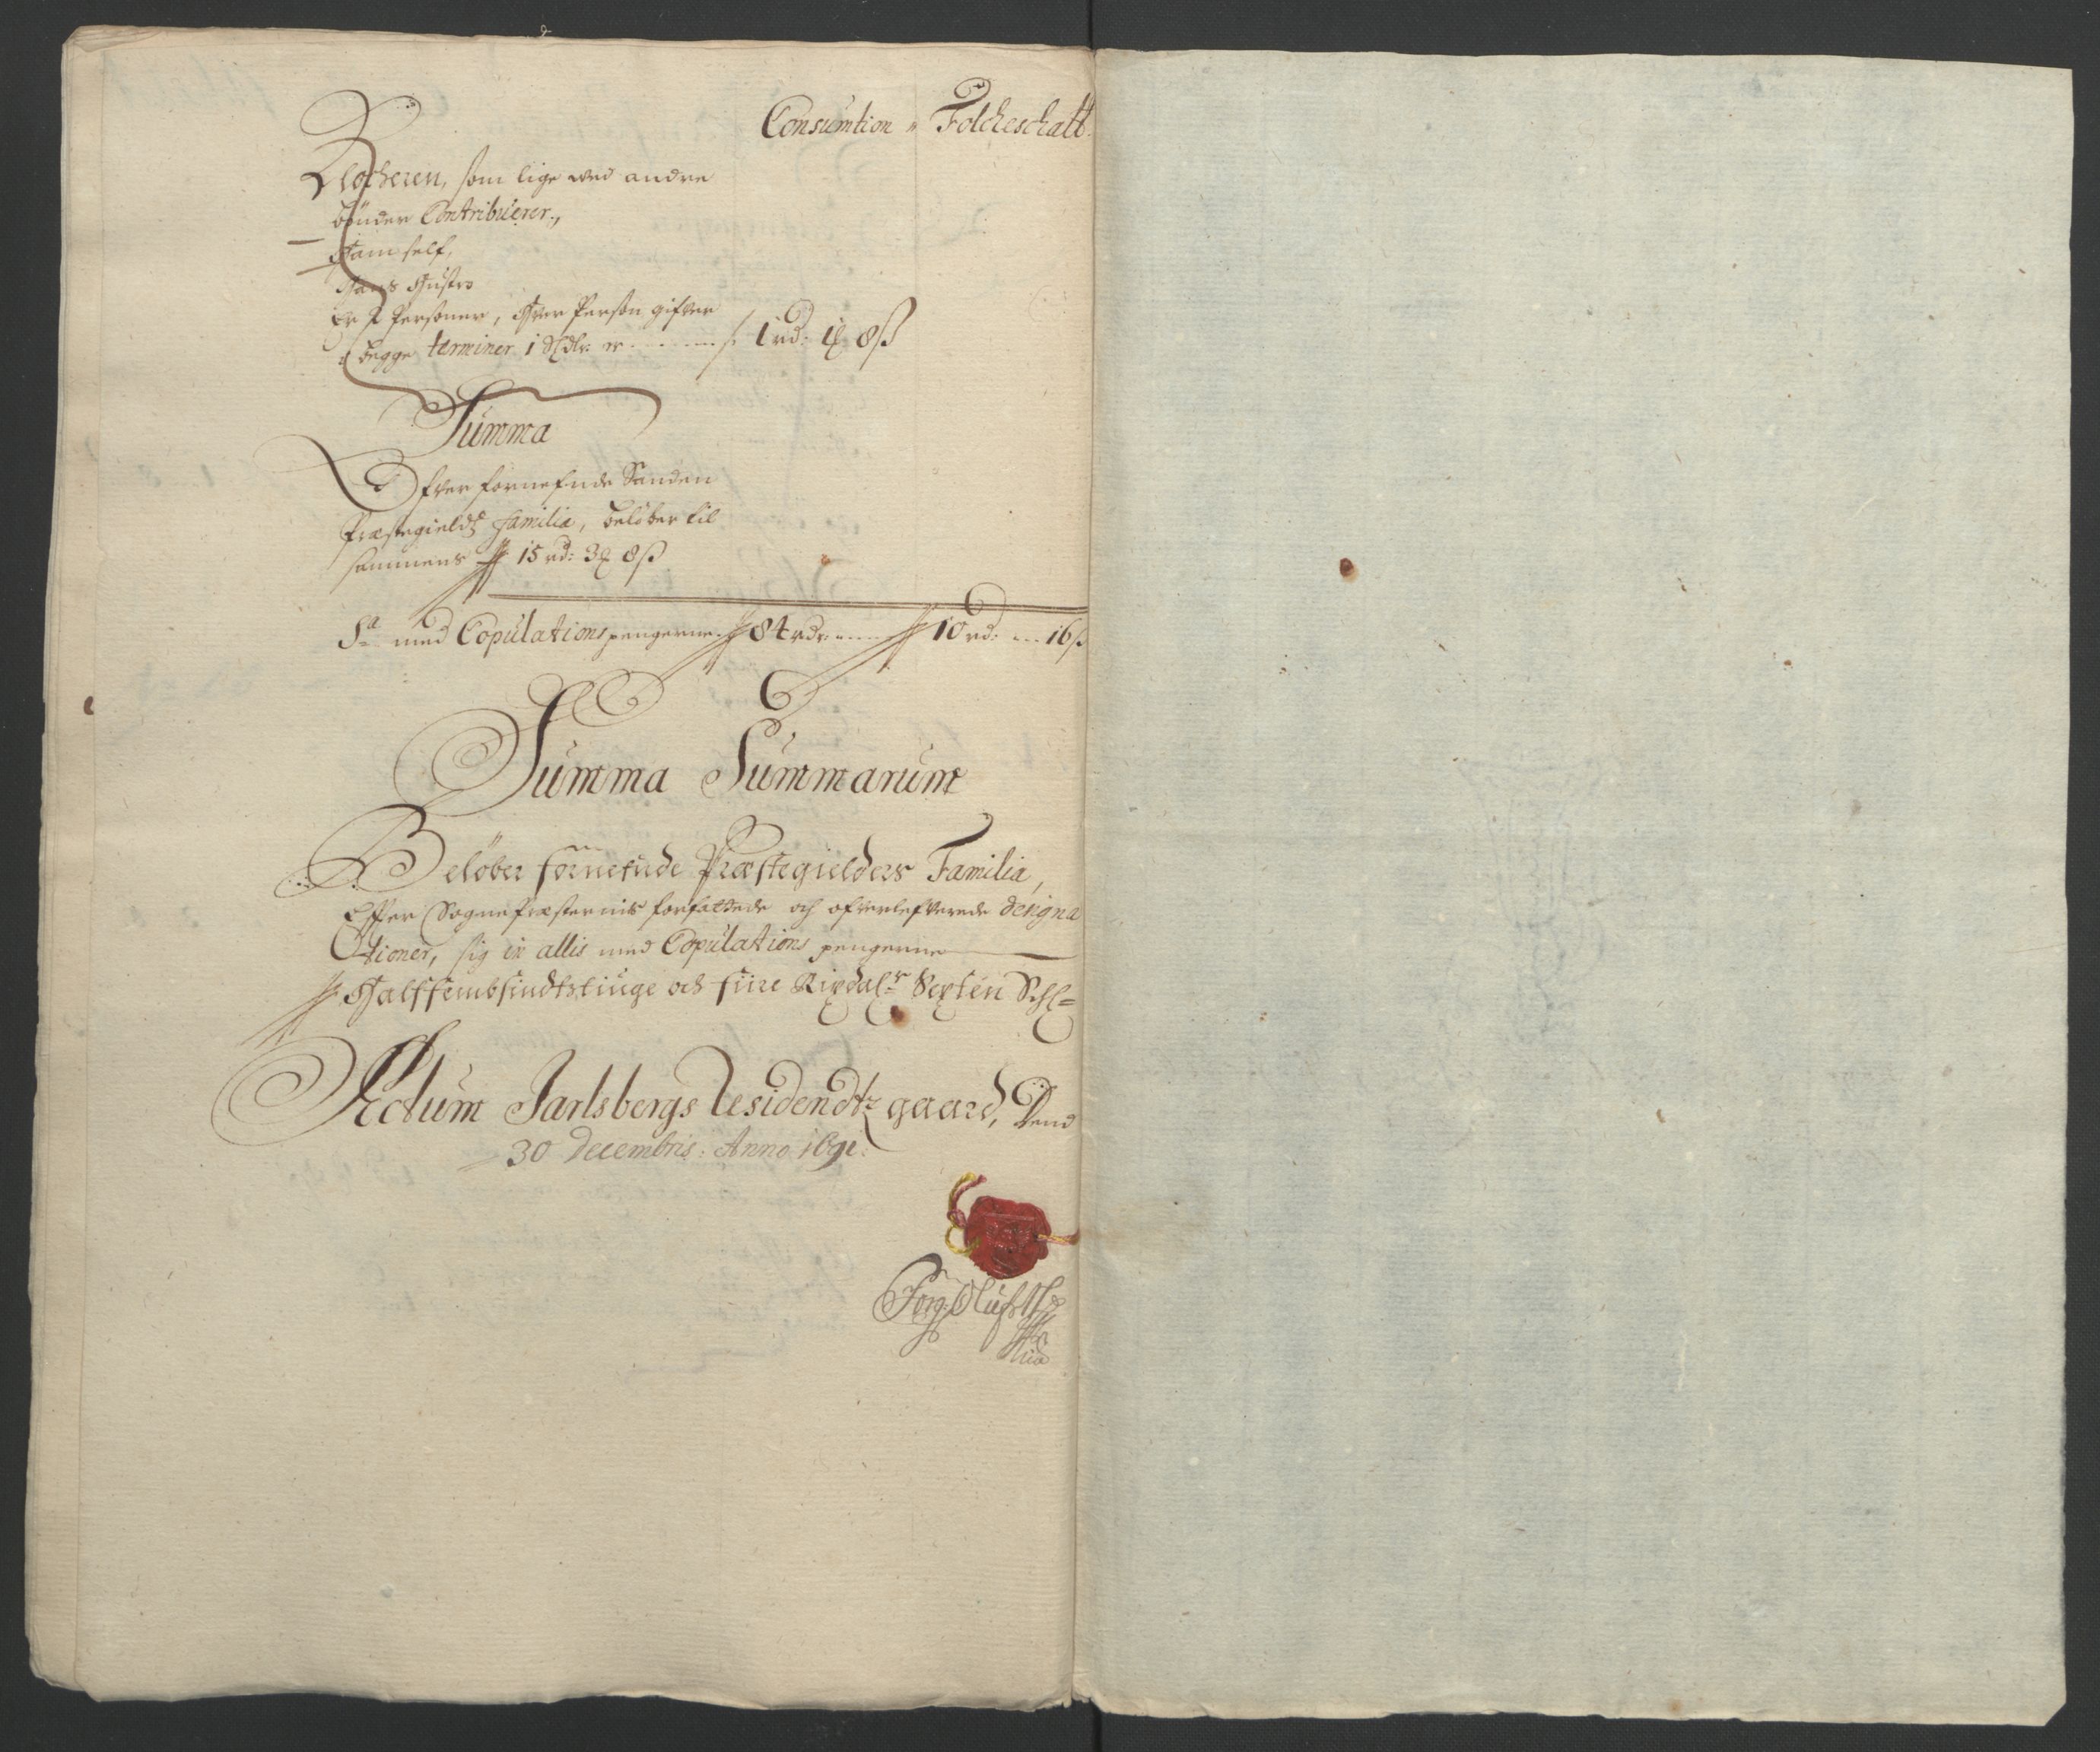 Consumtion " Folcheschatt
Klocheren, som lige ved andre
bönder Contribuerer,
Ham self,
Hans Hustro
Er 2 Personer, Hver Person gifver
begge terminer 1 Sldlr: er 1 rd: 1 8 ß
Summa
Ofver fornefnde Sanden
Præstegields Familia, belöber til
sammens 15 rd: 3 8 ß
Sa med Copulations pengerne 84 rdr 10 rd: 16 ß
Summa Summarum
Belöber fornefnde Præstegielders Familia,
Efter Sognepræsternis forfattede och ofverlefverede designa
tioner, sig in allis med Copulations pengerne
Halffembsindtstiuge och fiire Rixdalr Sexten Schl=
Actum Jarlsbergs Residendtz gaard, Dend
30 Decembris: Anno 1691.